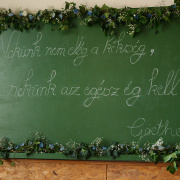 Nekünk nem elég a kékség,
nekünk az egész ég kell
Goethe